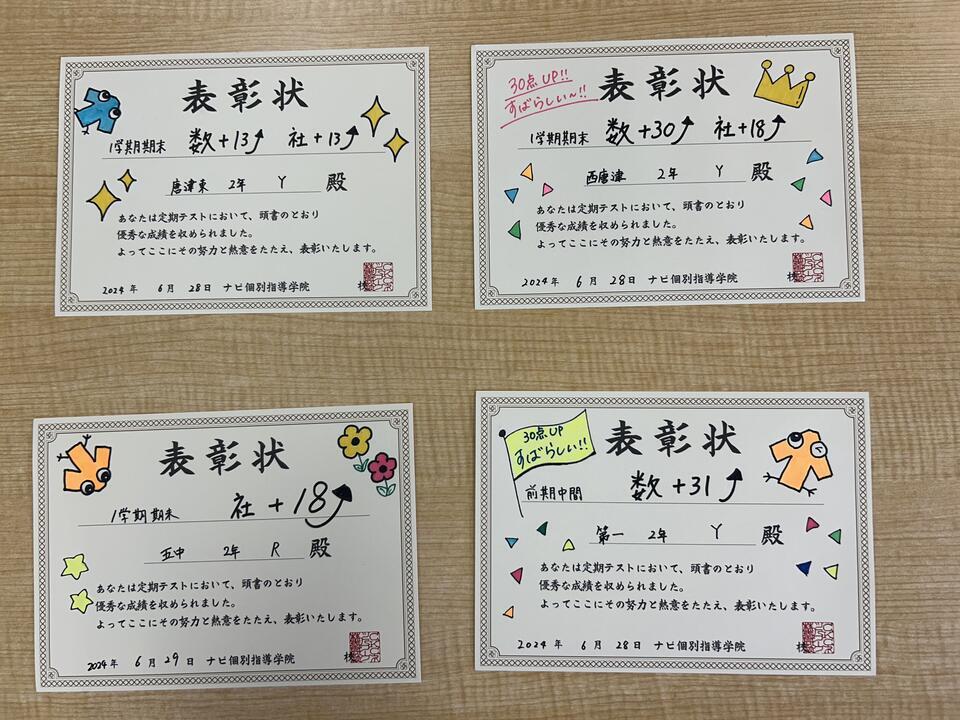 表彰状
1学期期末 数+13 社+13
唐津東 2年 Y 殿
あなたは定期テストにおいて、頭書のとおり
優秀な成績を収められました。
よってここにその努力と熱意をたたえ、表彰いたします。
2024年 6月 28日 ナビ個別指導学院
30点UP!!
すばらしい〜!!
表彰状
1学期期末 数+30 社+18
西唐津 2年 Y 殿
あなたは定期テストにおいて、頭書のとおり
優秀な成績を収められました。
よってここにその努力と熱意をたたえ、表彰いたします。
2024年 6月 28日 ナビ個別指導学院
表彰状
1学期期末 社+18
五中 2年 R 殿
あなたは定期テストにおいて、頭書のとおり
優秀な成績を収められました。
よってここにその努力と熱意をたたえ、表彰いたします。
2024年 6月 29日 ナビ個別指導学院
30点UP
すばらしい!!
表彰状
前期中間 数+31
第一 2年 Y 殿
あなたは定期テストにおいて、頭書のとおり
優秀な成績を収められました。
よってここにその努力と熱意をたたえ、表彰いたします。
2024年 6月 28日 ナビ個別指導学院